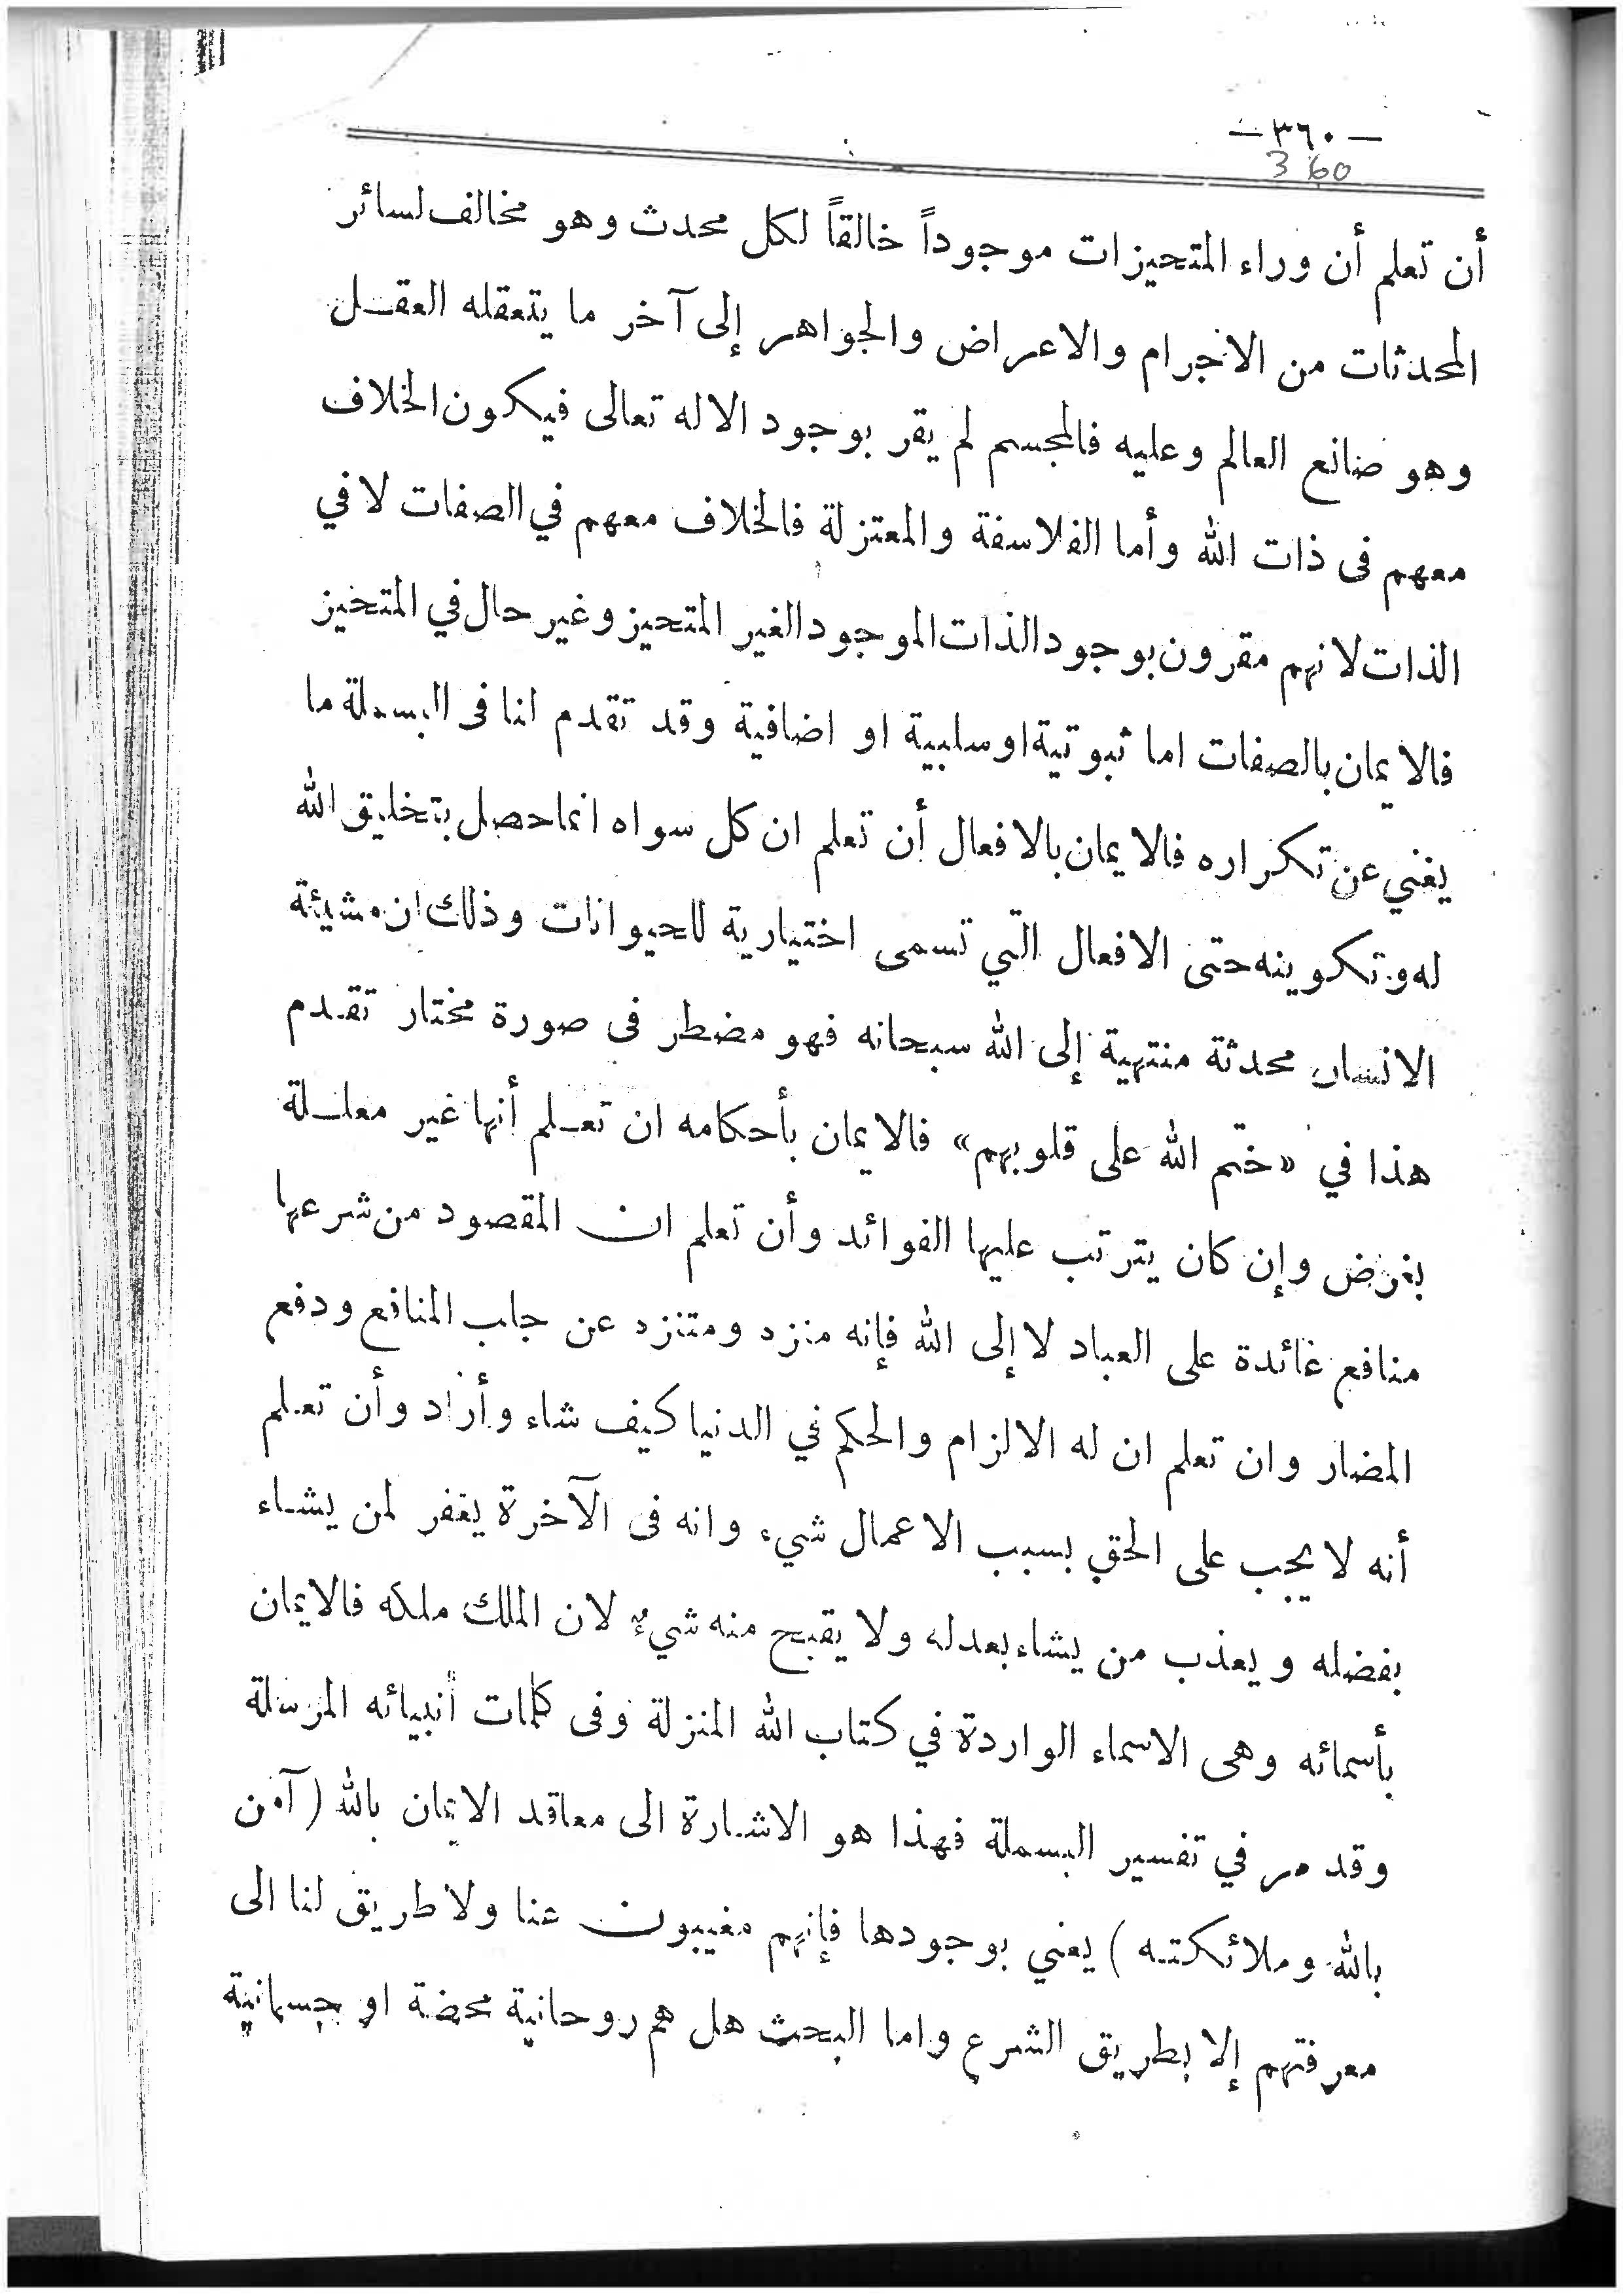 — ٣٦٠ —
360
أن تعلم أن وراء المتحيزات موجوداً خالقاً لكل محدث وهو مخالف لسائر
المحدثات من الاجرام والاعراض والجواهر إلى آخر ما يتعقله العقل
وهو صانع العالم وعليه فالمجسم لم يقر بوجود الاله تعالى فيكون الخلاف
معهم فى ذات الله وأما الفلاسفة والمعتزلة فالخلاف معهم في الصفات لا في
الذات لانهم مقرون بوجود الذات الموجود الغير المتحيز وغير حال في المتحيز
فالايمان بالصفات اما ثبوتية او سلبية او اضافية وقد تقدم لنا فى البسملة ما
يغني عن تكراره فالايمان بالافعال أن تعلم ان كل سواه انما حصل بتخليق الله
له وتكوينه حتى الافعال التي تسمى اختيارية للحيوانات وذلك ان مشيئة
الانسان محدثة منتهية إلى الله سبحانه فهو مضطر فى صورة مختار تقدم
هذا في «ختم الله على قلوبهم» فالايمان بأحكامه ان تعلم أنها غير معللة
بغرض وإن كان يترتب عليها الفوائد وأن تعلم ان المقصود من شرعها
منافع عائدة على العباد لا إلى الله فإنه منزه ومتنزه عن جلب المنافع ودفع
المضار وان تعلم ان له الالزام والحكم في الدنيا كيف شاء وأراد وأن تعلم
أنه لا يجب على الحق بسبب الاعمال شيء وانه فى الآخرة يغفر لمن يشاء
بفضله ويعذب من يشاء بعدله ولا يقبح منه شيءٌ لان الملك ملكه فالايمان
بأسمائه وهى الاسماء الواردة في كتاب الله المنزلة وفى كلمات أنبيائه المرسلة
وقد مر في تفسير البسملة فهذا هو الاشارة الى معاقد الايمان بالله (آمن
بالله وملائكته) يعني بوجودها فإنهم مغيبون عنا ولا طريق لنا الى
معرفتهم إلا بطريق الشرع واما البحث هل هم روحانية محضة او جسمانية